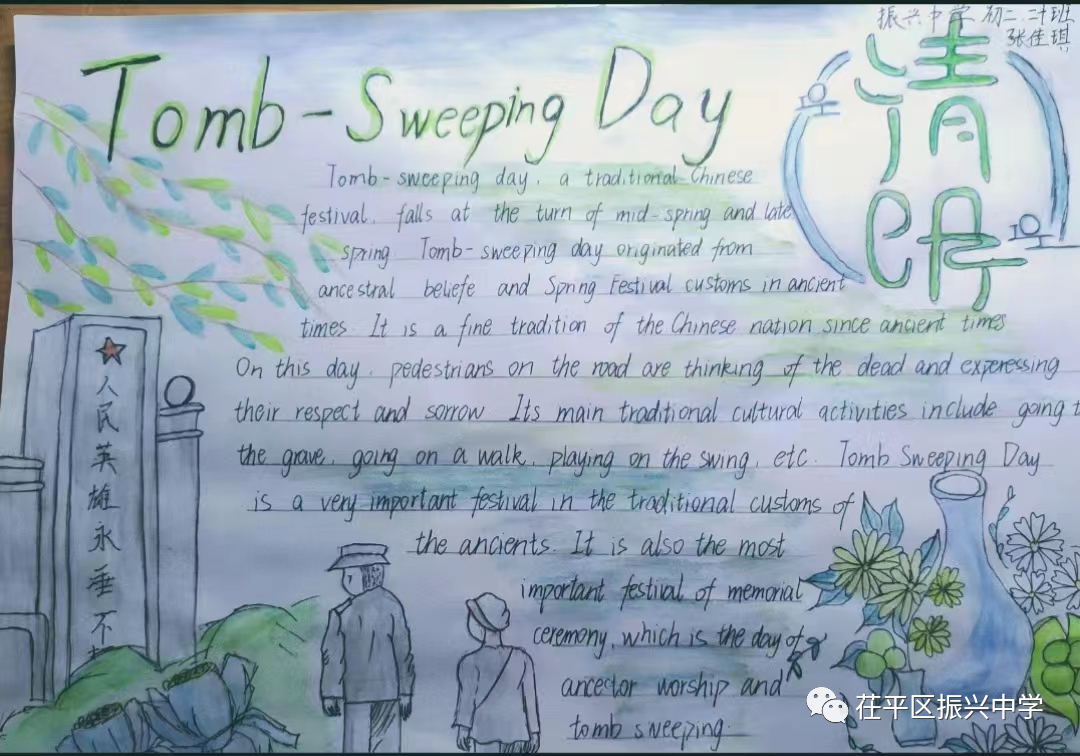 振兴中学 初二.二十班
张佳琪
清明
Tomb-Sweeping Day
Tomb-sweeping day, a traditional Chinese
festival, falls at the turn of mid-spring and late
spring. Tomb-sweeping day originated from
ancestral beliefe and Spring Festival customs in ancient
times. It is a fine tradition of the Chinese nation since ancient times
On this day, pedestrians on the road are thinking of the dead and experessing
their respect and sorrow. Its main traditional cultural activities include going t
the grave, going on a walk, playing on the swing, etc. Tomb Sweeping Day
is a very important festival in the traditional customs of
the ancients. It is also the most
important festival of memorial
ceremony, which is the day of
ancector worship and
tomb sweeping.
人民英雄永垂不
茌平区振兴中学